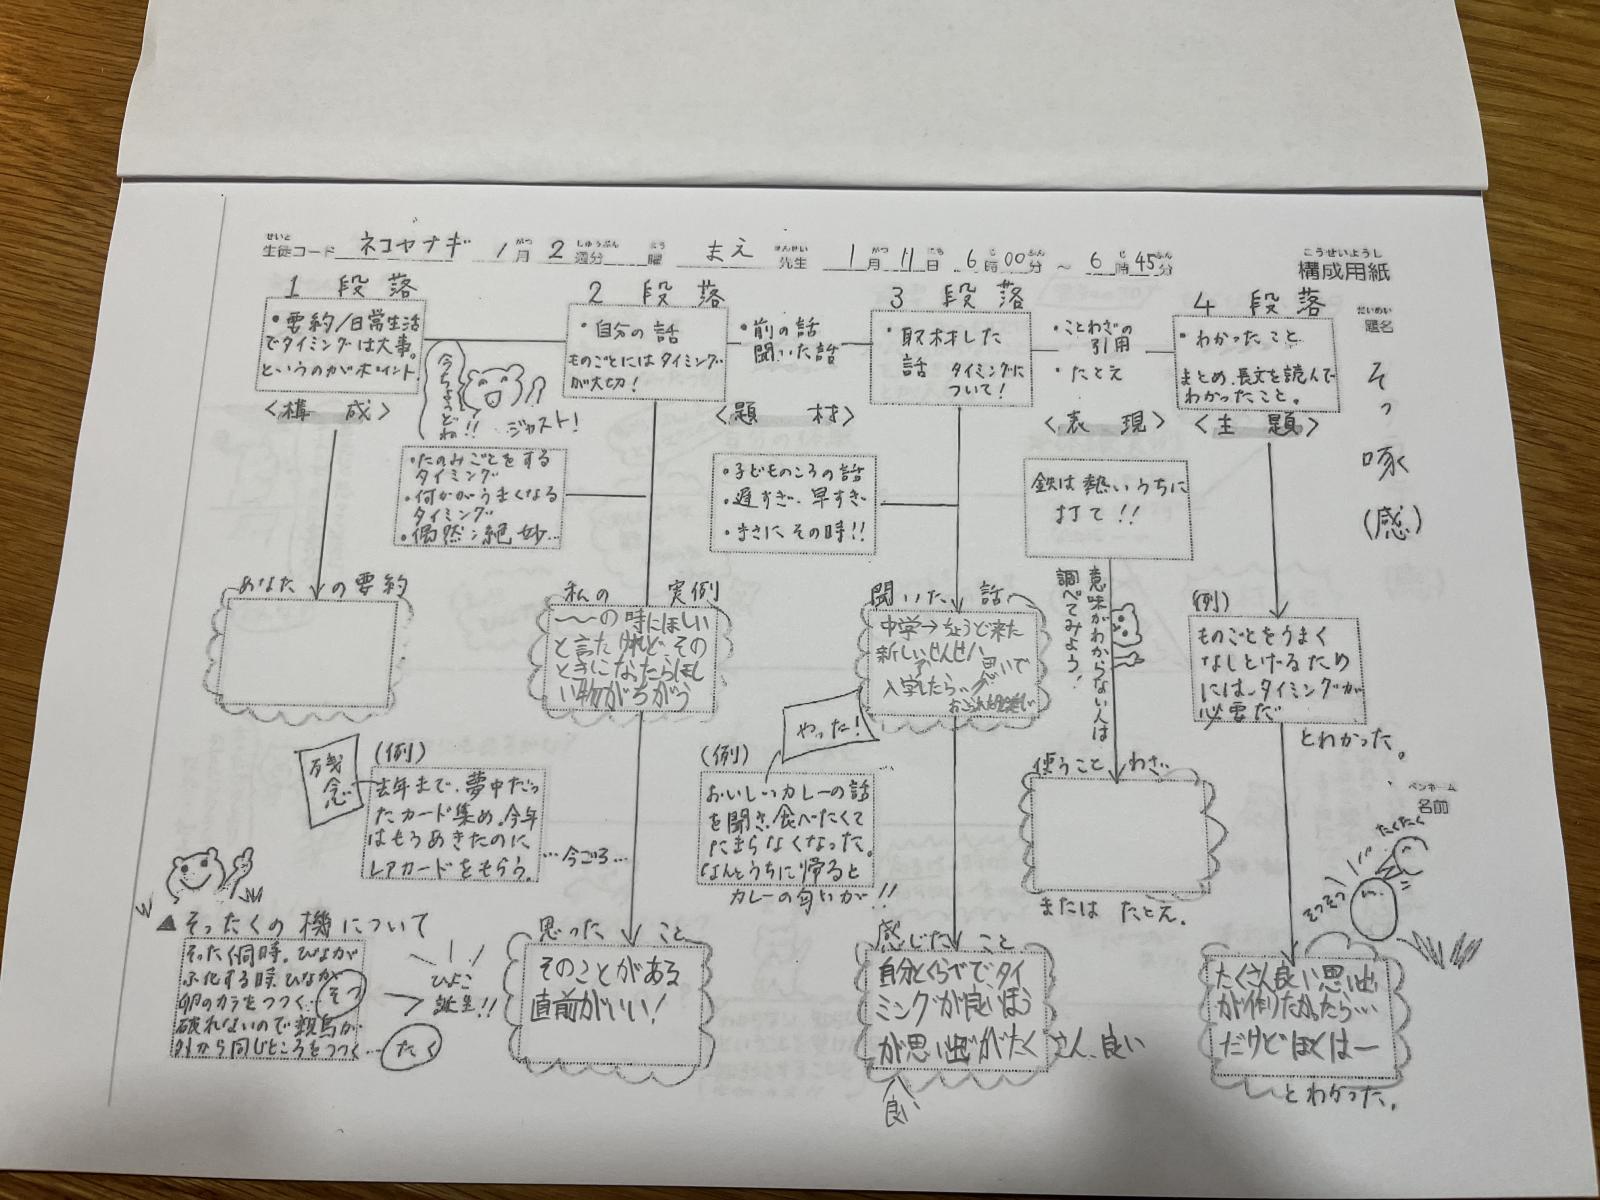 せいと
生徒コード ネコヤナギ 1月 2週分 曜 まえ 先生 1月 11日 6時 00分 ～ 6時 45分
こうせいようし
構成用紙
だいめい
題名
そっ啄
(感)
1 段落
・要約/日常生活
でタイミングは大事。
というのがポイント。
<構 成>
今ちょうどね!!
ジャスト!
・たのみごとをする
タイミング
・何かがうまくなる
タイミング
・偶然:絶妙…
あなたの要約
2 段落
・自分の話
ものごとにはタイミング
が大切!
・前の話
聞いた話
<題 材>
・子どものころの話
・遅すぎ・早すぎ
・まさにその時!!
私の 実例
～の時にほしい
と言たけれど、その
ときになったらほし
い物がちがう
残念
(例)
去年まで、夢中だっ
たカード集め。今年
はもうあきたのに
レアカードをもらう。
…今ごろ…
思ったこと
そのことがある
直前がいい!
3 段落
・取材した
話 タイミングに
ついて!
・ことわざの
引用
・たとえ
<表 現>
鉄は熱いうちに
打て!!
意味がわからない人は
調べてみよう!
聞いた話
中学→ちょうど来た
新しいせんせい
入学したら、
思いで
やった!
(例)
おいしいカレーの話
を聞き、食べたくて
たまらなくなった。
なんとうちに帰ると
カレーの匂いが!!
使うことわざ
または たとえ.
感じたこと
自分とくらべて、タイ
ミングが良いほう
が思い出がたくさん、良い
良い
4 段落
・わかったこと
まとめ、長文を読んで
わかったこと。
<主 題>
(例)
ものごとをうまく
なしとげるため
には、タイミングが
必要だ
とわかった。
ペンネーム
名前
たくたく
そつそつ
たくさん良い思い出
が作りたかったら…
だけどぼくは―
とわかった.
▲そったくの機について
そったく同時。ひなが
ふ化する時、ひなが
卵のカラをつつく…そつ
破れないので親鳥が
外から同じところをつつく…たく
ひよこ
誕生!!